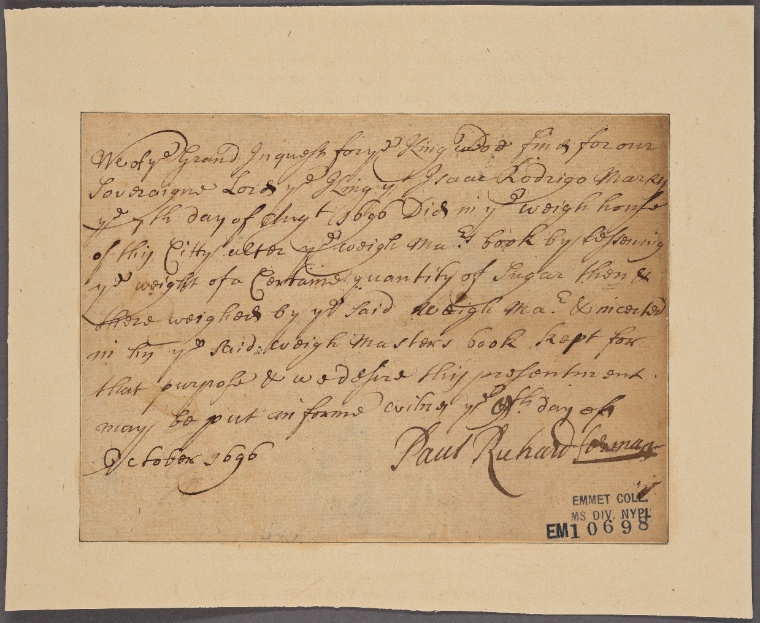 We of ye Grand Inquest for ye King doe find for our
Soveraigne Lord ye King yt Isaac Rodrigo Marks
ye 7th day of Augt 1696 Did in ye weigh house
of this Citty alter ye weigh Mars book by lessening
ye weight of a Certaine quantity of Sugar then &
there weighed by ye said weigh Mar & incerted
in his ye said weigh Masters book kept for
that purpose & we desire this presentment
may be put in forme witnes ye day of
October 1696
Paul Richard forman
EMMET COLL.
MS DIV. NYPL
EM10698